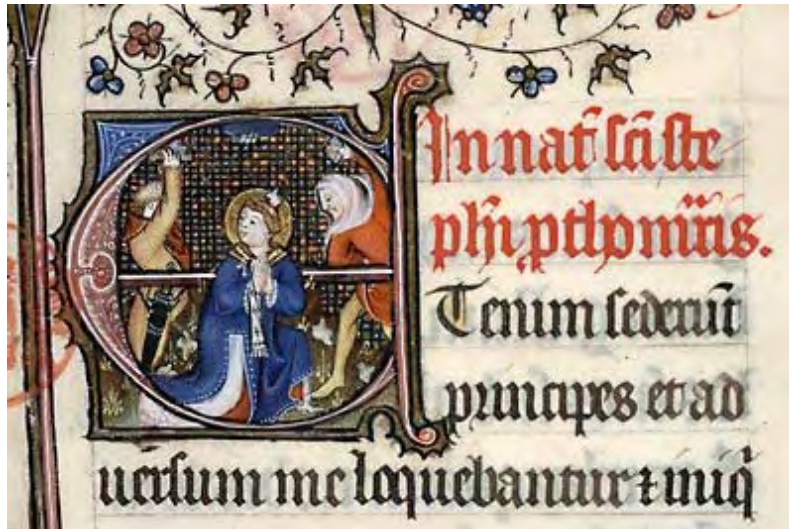 In nat̄ sc̄i ste
phī ptħōm̄r̄is.
E Tenim sederūt
principes et ad
uersum me loquebantur ⁊ iniq̄